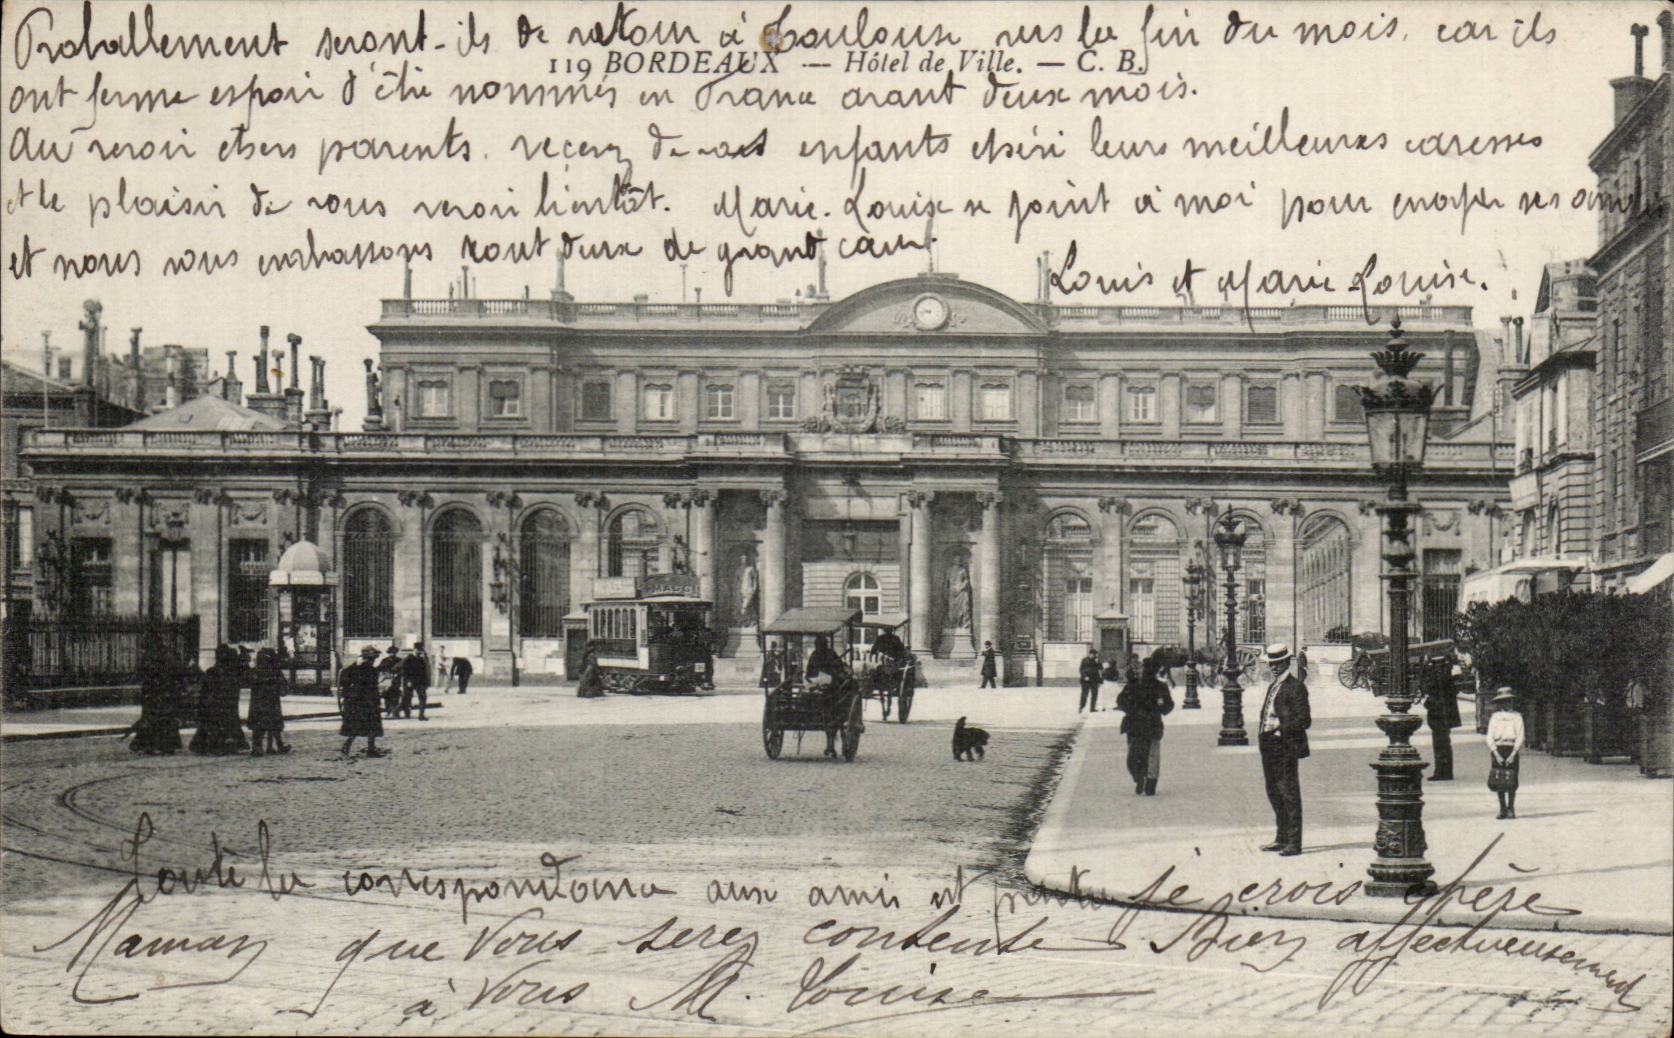 Proballement seront-ils de retour à Toulouse vers la fin du mois, car ils
119 BORDEAUX — Hôtel de Ville. — C. B.
ont ferme espoir d'être nommés en France avant deux mois.
Au revoir chers parents. recevez de vos enfants chéri leurs meilleures caresses
et le plaisir de vous revoir bientôt. Marie-Louise se joint à moi pour envoyer ses amitiés
et nous vous embrassons tout deux de grand cœur.
Louis et Marie Louise.
Toute la correspondance aux amis est partie je crois chère
Maman que vous serez contente Bien affectueusement
à vous M. Louise